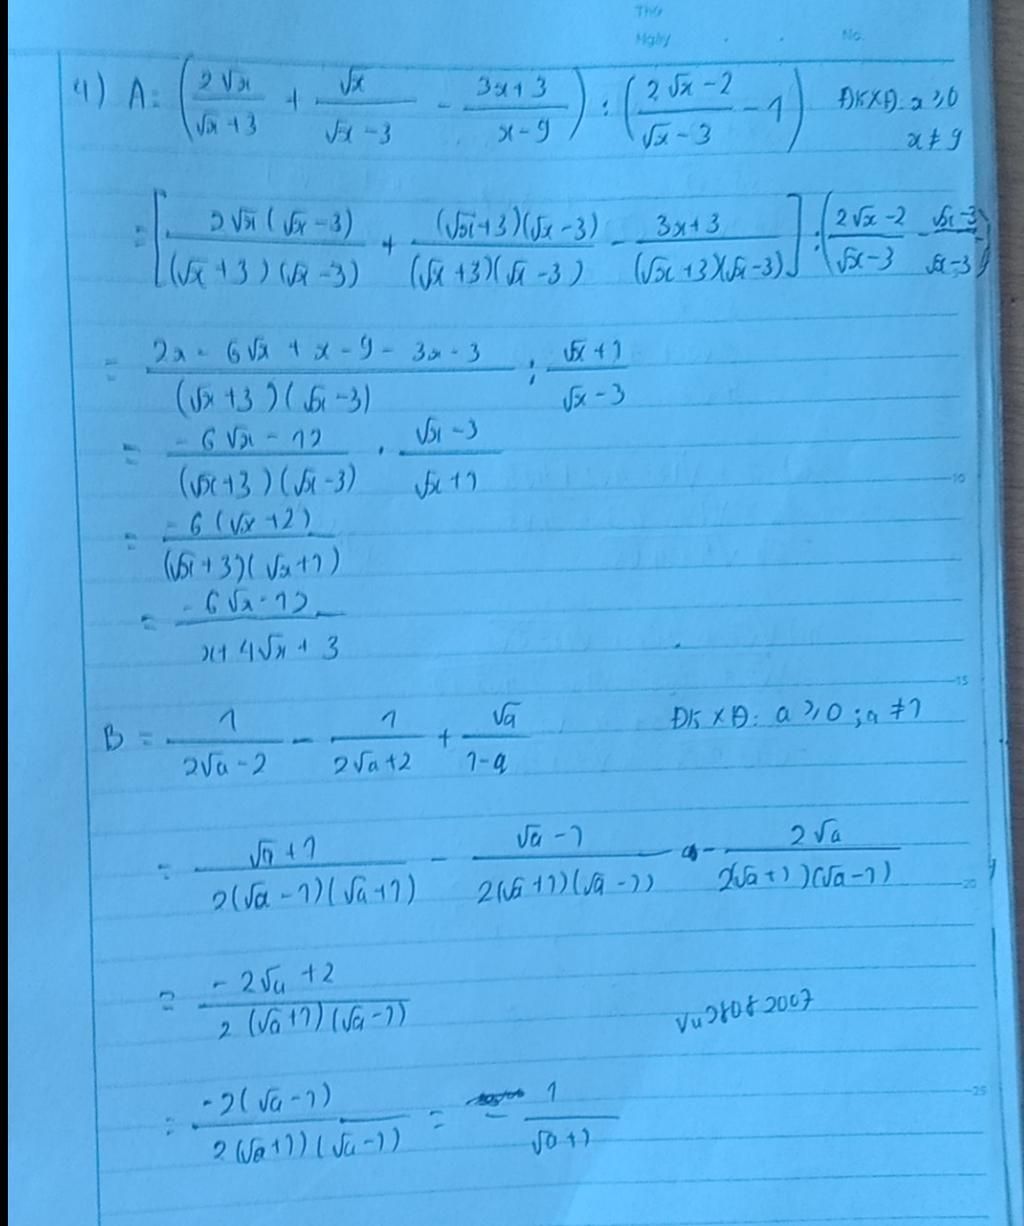 Thứ
Ngày . . No.
4) A = (2√x/(√x+3) + √x/(√x-3) - (3x+3)/(x-9)) : ((2√x-2)/(√x-3) - 1) ĐKXĐ: x ⩾ 0
x ≠ 9
= [2√x(√x-3)/((√x+3)(√x-3)) + (√x+3)(√x-3)/((√x+3)(√x-3)) - (3x+3)/((√x+3)(√x-3))] : ((2√x-2)/(√x-3) - (√x-3)/(√x-3))
= (2x - 6√x + x - 9 - 3x - 3)/((√x+3)(√x-3)) : (√x+1)/(√x-3)
= (-6√x - 12)/((√x+3)(√x-3)) . (√x-3)/(√x+1)
10
= -6(√x+2)/((√x+3)(√x+1))
= (-6√x-12)/(x+4√x+3)
15
B = 1/(2√a-2) - 1/(2√a+2) + √a/(1-a) ĐKXĐ: a ⩾ 0; a ≠ 1
= (√a+1)/(2(√a-1)(√a+1)) - (√a-1)/(2(√a+1)(√a-1)) - 2√a/(2(√a+1)(√a-1))
20
= (-2√a+2)/(2(√a+1)(√a-1))
Vu28082007
25
= -2(√a-1)/(2(√a+1)(√a-1)) = - 1/(√a+1)